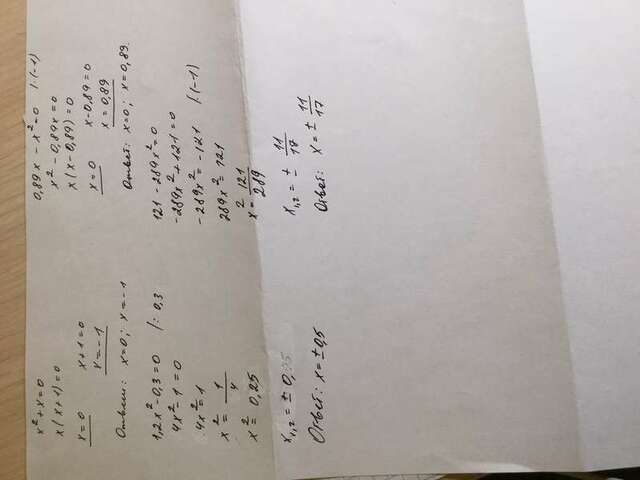 x² + x = 0
x(x+1) = 0
x = 0 x+1 = 0
x = -1
Ответ: x=0; x=-1
1,2x² - 0,3 = 0 /: 0,3
4x² - 1 = 0
4x² = 1
x² = 1/4
x² = 0,25
x₁,₂ = ± 0,5
Ответ: x = ±0,5
0,89x - x² = 0 /·(-1)
x² - 0,89x = 0
x(x - 0,89) = 0
x = 0 x - 0,89 = 0
x = 0,89
Ответ: x=0; x=0,89.
121 - 289x² = 0
-289x² + 121 = 0
-289x² = -121 /·(-1)
289x² = 121
x² = 121/289
x₁,₂ = ± 11/17
Ответ: x = ± 11/17